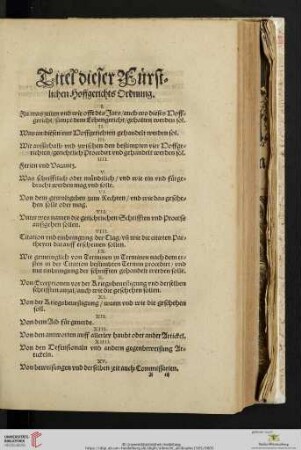 Titel dieser Fürst-
lichen Hoffgerichts Ordnung.
I.
Zu was zeiten und wie offt des Jars / auch wo dieses Hoff-
gericht / sampt dem Lehengericht gehalten werden sol.
II.
Was an diesem unserm Hoffgerichten gehandelt werden sol.
III.
Wie ausserhalb und zwischen den bestimpten vier Hoffge-
richten / gerichtlich Procedirt und gehandelt werden sol.
IIII.
Ferien und Vacantz.
V.
Was schrifftlich oder mündtlich / und wie ein und fürge-
bracht werden mag und solle.
VI.
Von dem gnungsthuen zum Rechten / und wie das geschehen
solle oder mag.
VII.
Unter wes namen die gerichtlichen Schrifften und Process
ausgehen sollen.
VIII.
Citation und einbringung der Clag / und wie die citirten Par-
theyen darauff erscheinen sollen.
IX.
Wie gemeinglich von Terminen zu Terminen nach dem er-
sten in der Citation bestimbten Termin procedirt / und
mit einbringung der schrifften gehandelt werden solle.
X.
Von Exceptionen vor der Kriegsbevestigung und derselben
schrifften antzal / auch wie die geschehen sollen.
XI.
Von der Kriegsbevestigung / wann und wie die geschehen
soll.
XII.
Von dem Aid für gevärde.
XIII.
Von den antworten auff allerley haubt oder ander Artickel.
XIIII.
Von den Defensionaln und andern gegenbeweisung Ar-
tickeln.
XV.
Von beweisungen und derselben zeit auch Commissarien.